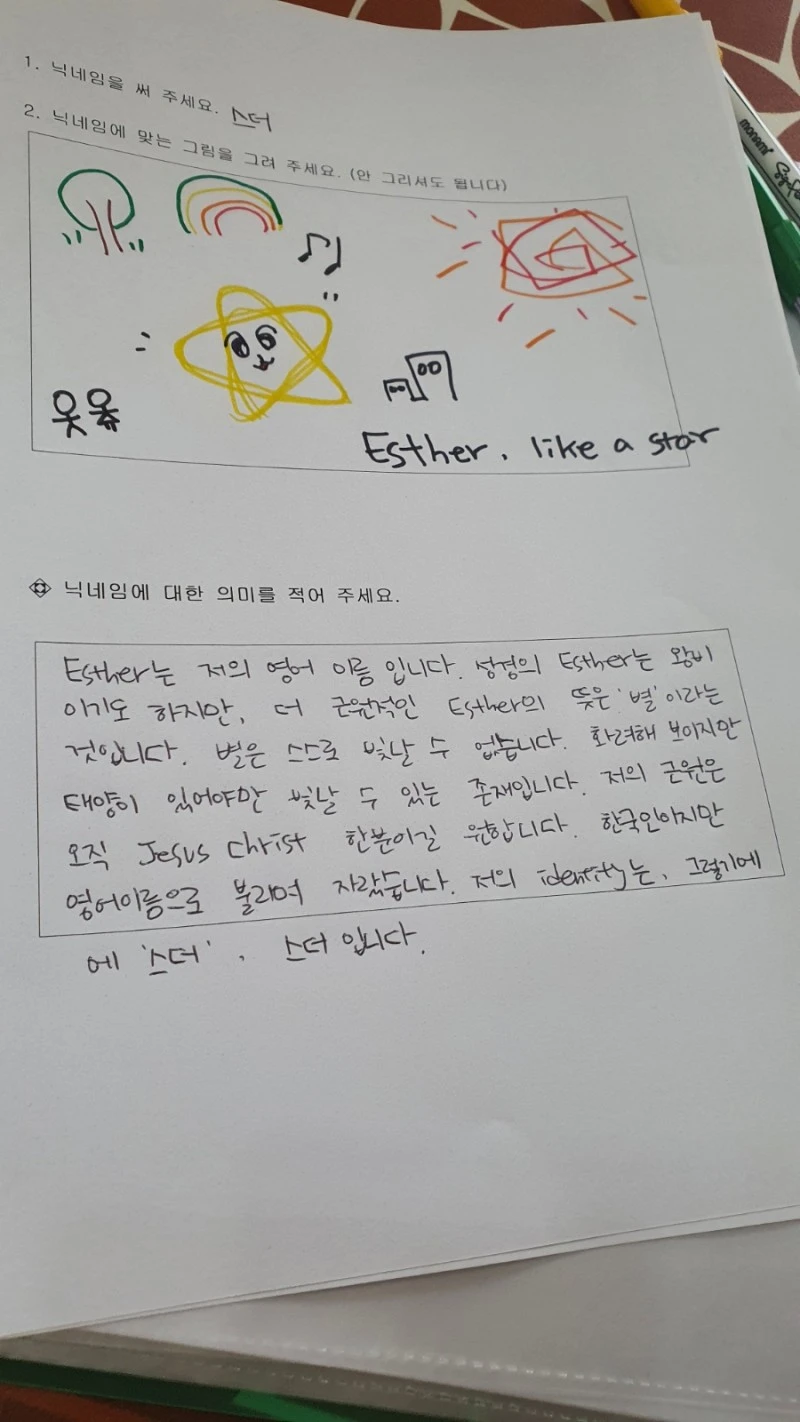 1. 닉네임을 써 주세요. 스더
2. 닉네임에 맞는 그림을 그려 주세요. (안 그리셔도 됩니다)
monami
Esther, like a star
닉네임에 대한 의미를 적어 주세요.
Esther는 저의 영어 이름 입니다. 성경의 Esther는 왕비
이기도 하지만, 더 근원적인 Esther의 뜻은 '별'이라는
것입니다. 별은 스스로 빛날 수 없습니다. 화려해 보이지만
태양이 있어야만 빛날 수 있는 존재입니다. 저의 근원은
오직 Jesus Christ 한분이길 원합니다. 한국인이지만
영어이름으로 불리며 자랐습니다. 저의 identity는, 그렇기에
에 '스더', 스더 입니다.